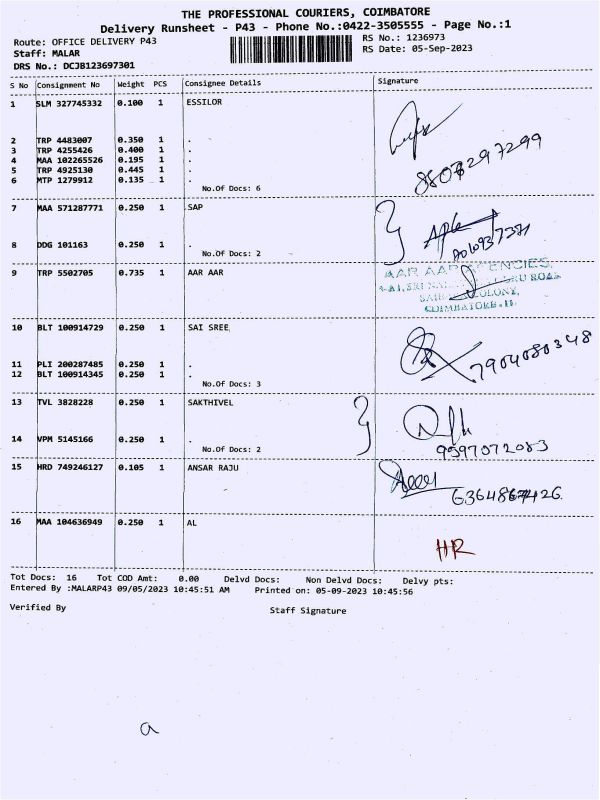 THE PROFESSIONAL COURIERS, COIMBATORE
Delivery Runsheet - P43 - Phone No.:0422-3505555 - Page No.:1
Route: OFFICE DELIVERY P43
RS No.: 1236973
Staff: MALAR
RS Date: 05-Sep-2023
DRS No.: DCJB123697301
S No Consignment No Weight PCS Consignee Details Signature
1 SLM 327745332 0.100 1 ESSILOR
2 TRP 4483007 0.350 1 .
3 TRP 4255426 0.400 1 .
4 MAA 102265526 0.195 1 .
5 TRP 4925130 0.445 1 .
6 MTP 1279912 0.135 1 .
8807297299
No.Of Docs: 6
7 MAA 571287771 0.250 1 SAP
8 DDG 101163 0.250 1 .
No.Of Docs: 2
9 TRP 5502705 0.735 1 AAR AAR
AAR AAR AGENCIES,
COLONY,
COIMBATORE
10 BLT 100914729 0.250 1 SAI SREE
7904080348
11 PLI 200287485 0.250 1 .
12 BLT 100914345 0.250 1 .
No.Of Docs: 3
13 TVL 3828228 0.250 1 SAKTHIVEL
14 VPM 5145166 0.250 1 .
No.Of Docs: 2
9597072083
15 HRD 749246127 0.105 1 ANSAR RAJU
16 MAA 104636949 0.250 1 AL
HR
Tot Docs: 16 Tot COD Amt: 0.00 Delvd Docs: Non Delvd Docs: Delvy pts:
Entered By :MALARP43 09/05/2023 10:45:51 AM Printed on: 05-09-2023 10:45:56
Verified By Staff Signature
a